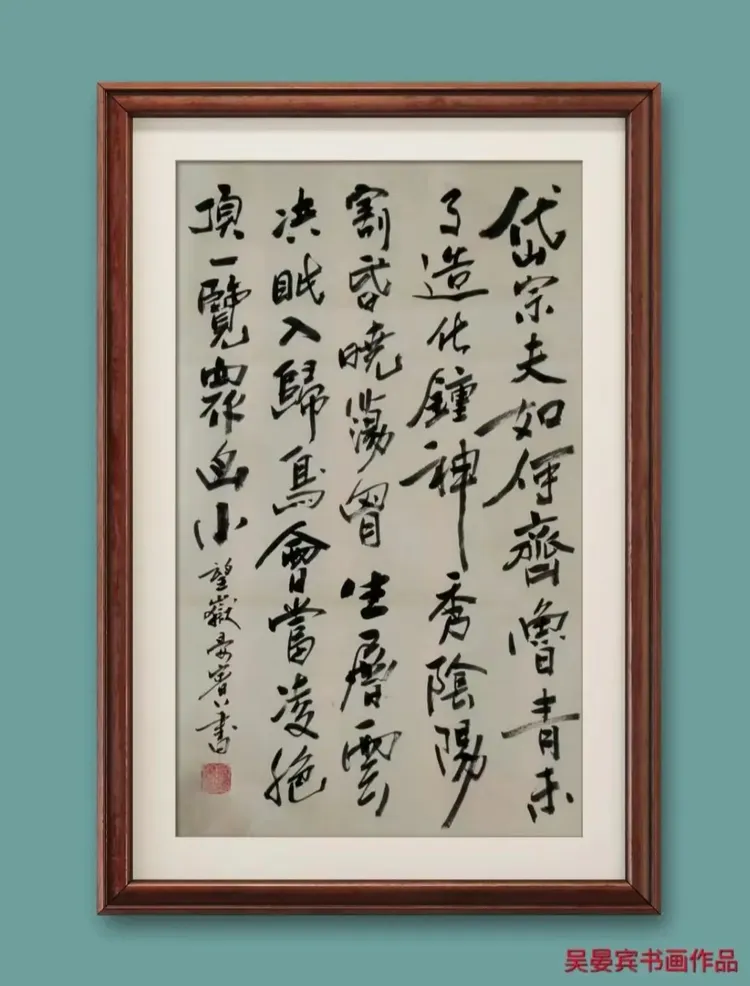 岱宗夫如何齊魯青未
了造化鍾神秀陰陽
割昏曉蕩胷生層雲
决眦入歸鳥會當凌絶
頂一覽眾山小 望嶽晏賓書
吴晏宾书画作品